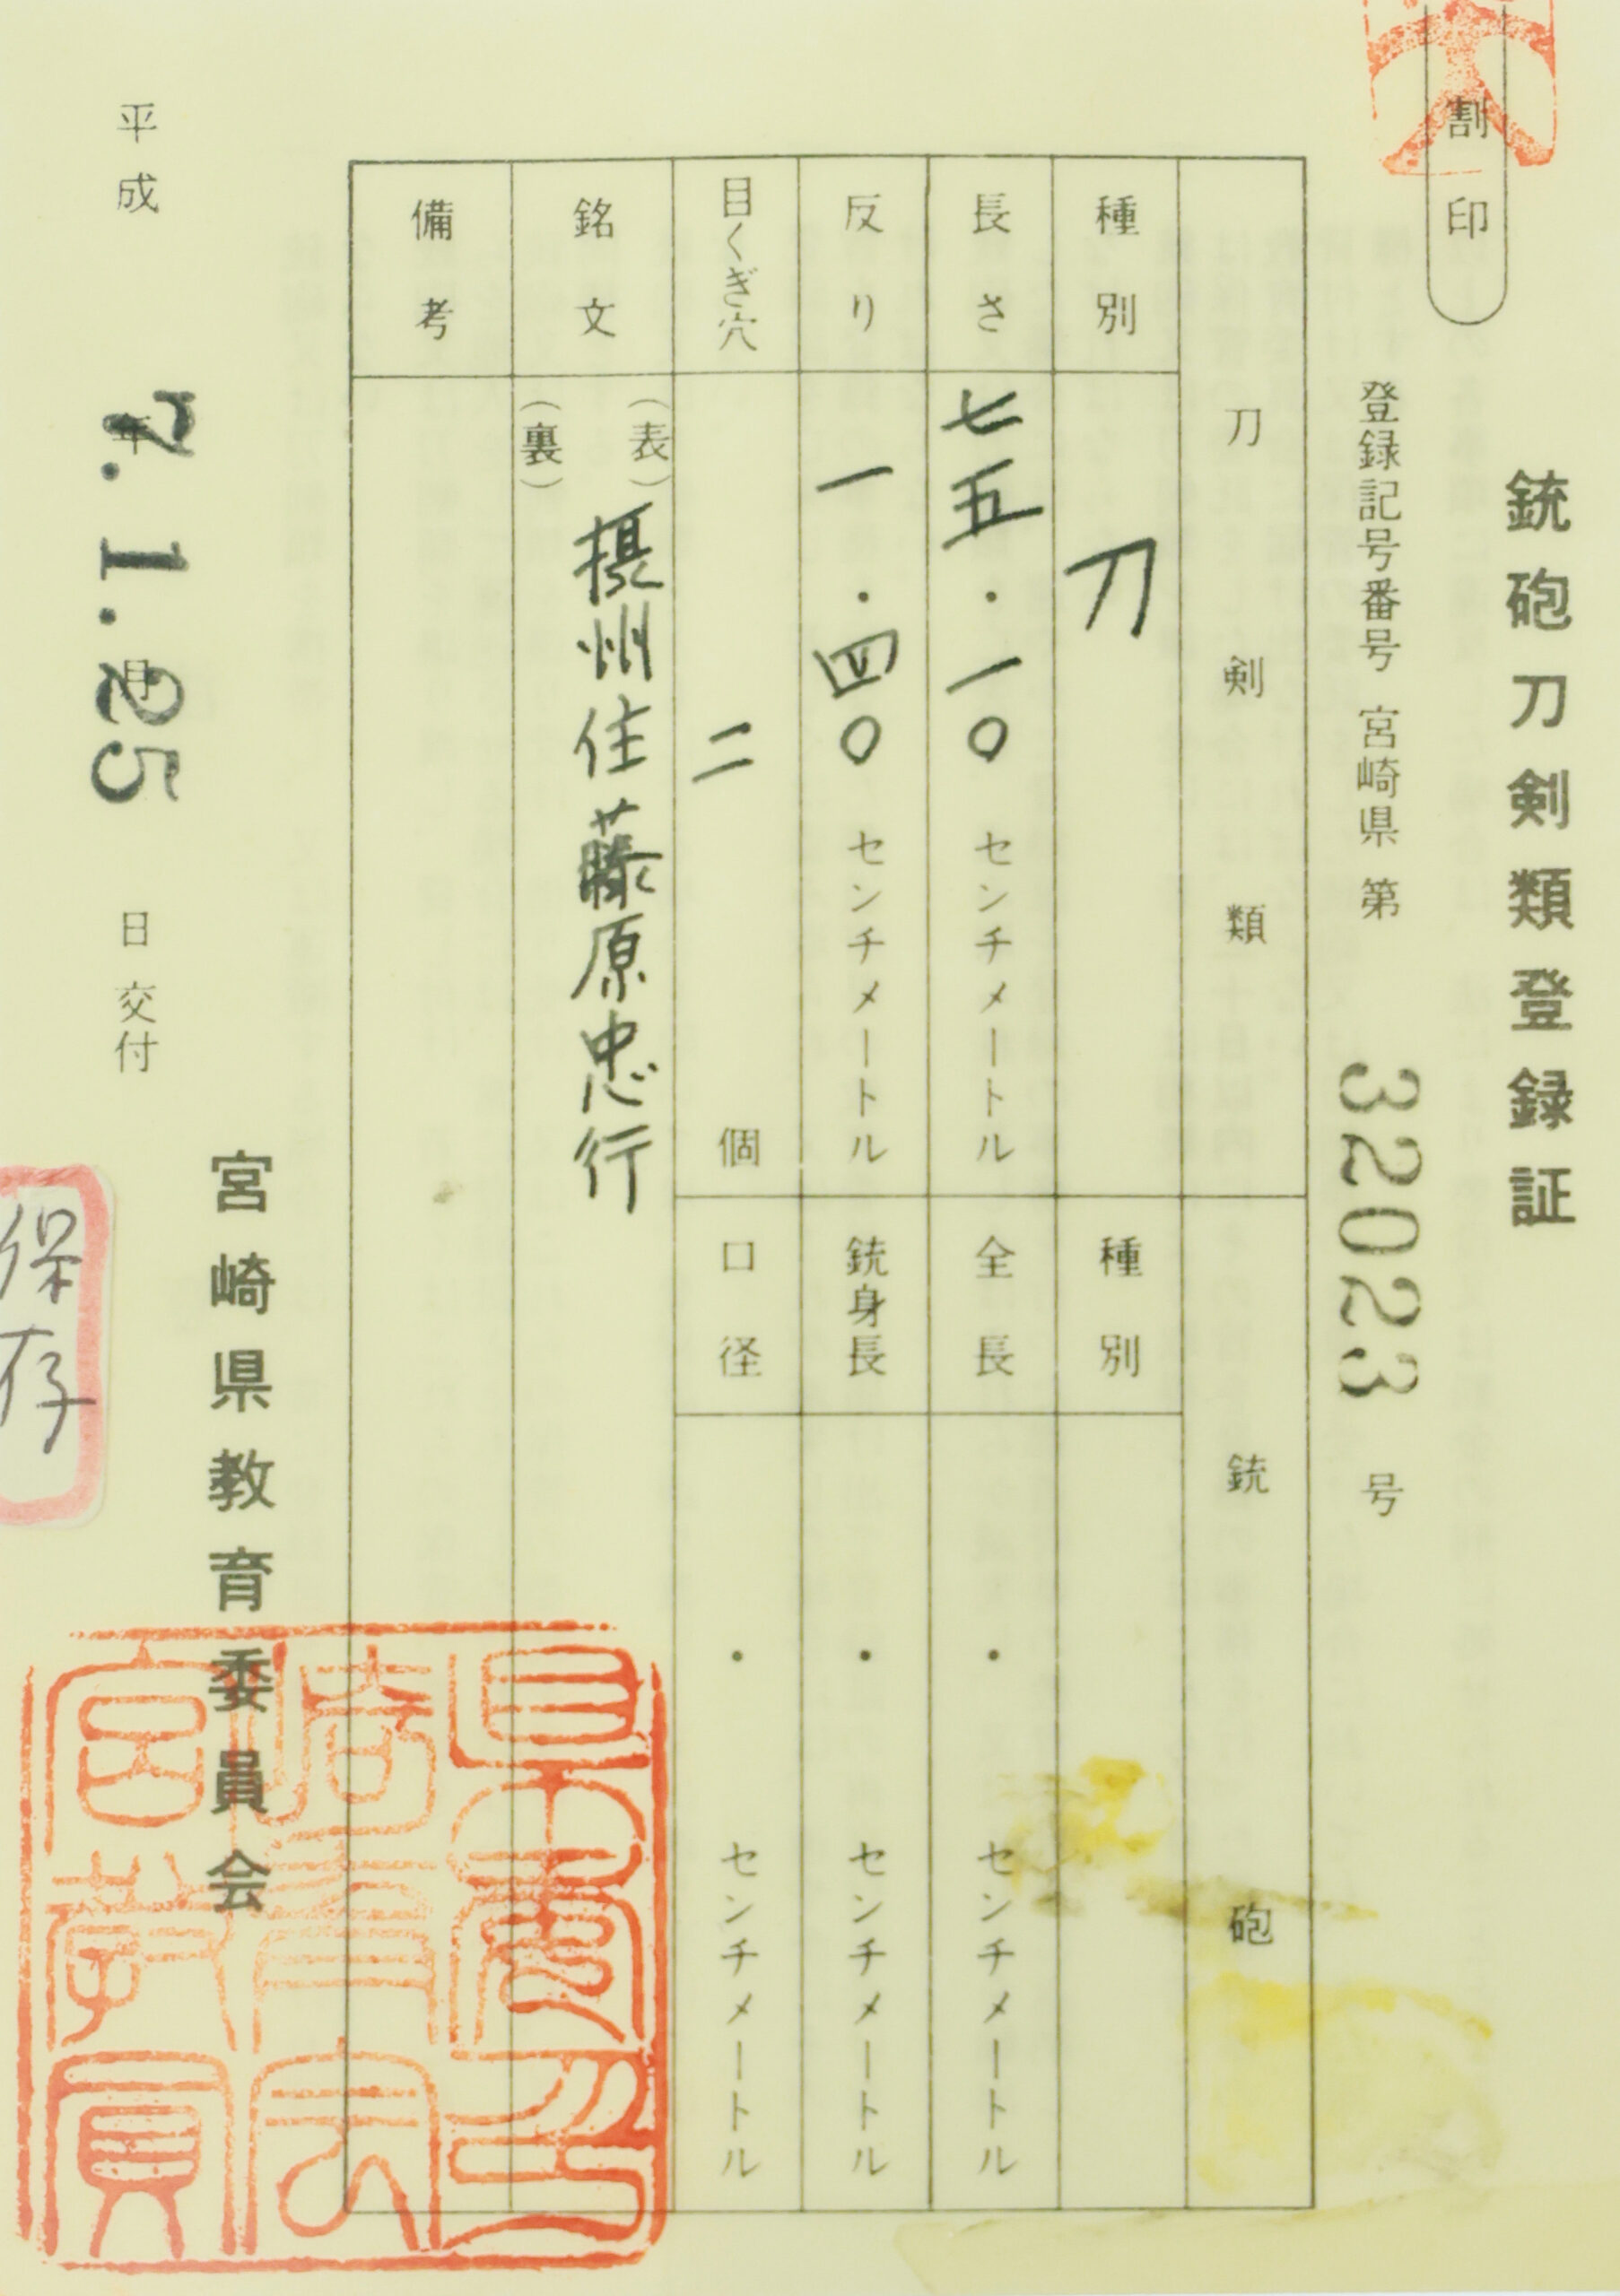 割印
銃砲刀剣類登録証
登録記号番号 宮崎県 第 32023 号
刀剣類
銃砲
種別 刀
種別
長さ 七五・一〇 センチメートル
全長 ・ センチメートル
反り 一・四〇 センチメートル
銃身長 ・ センチメートル
目くぎ穴 二 個
口径 ・ センチメートル
銘文 (表) 摂州住藤原忠行
(裏)
備考
宮崎県教育委員会
宮崎県教育委員会之印
平成 7年 1.月 25 日 交付
保存